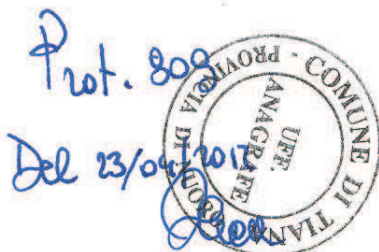 Prot. 809
Del 23/04/2017
COMUNE DI TIANA
PROVINCIA DI NUORO
UFF.
ANAGRAFE